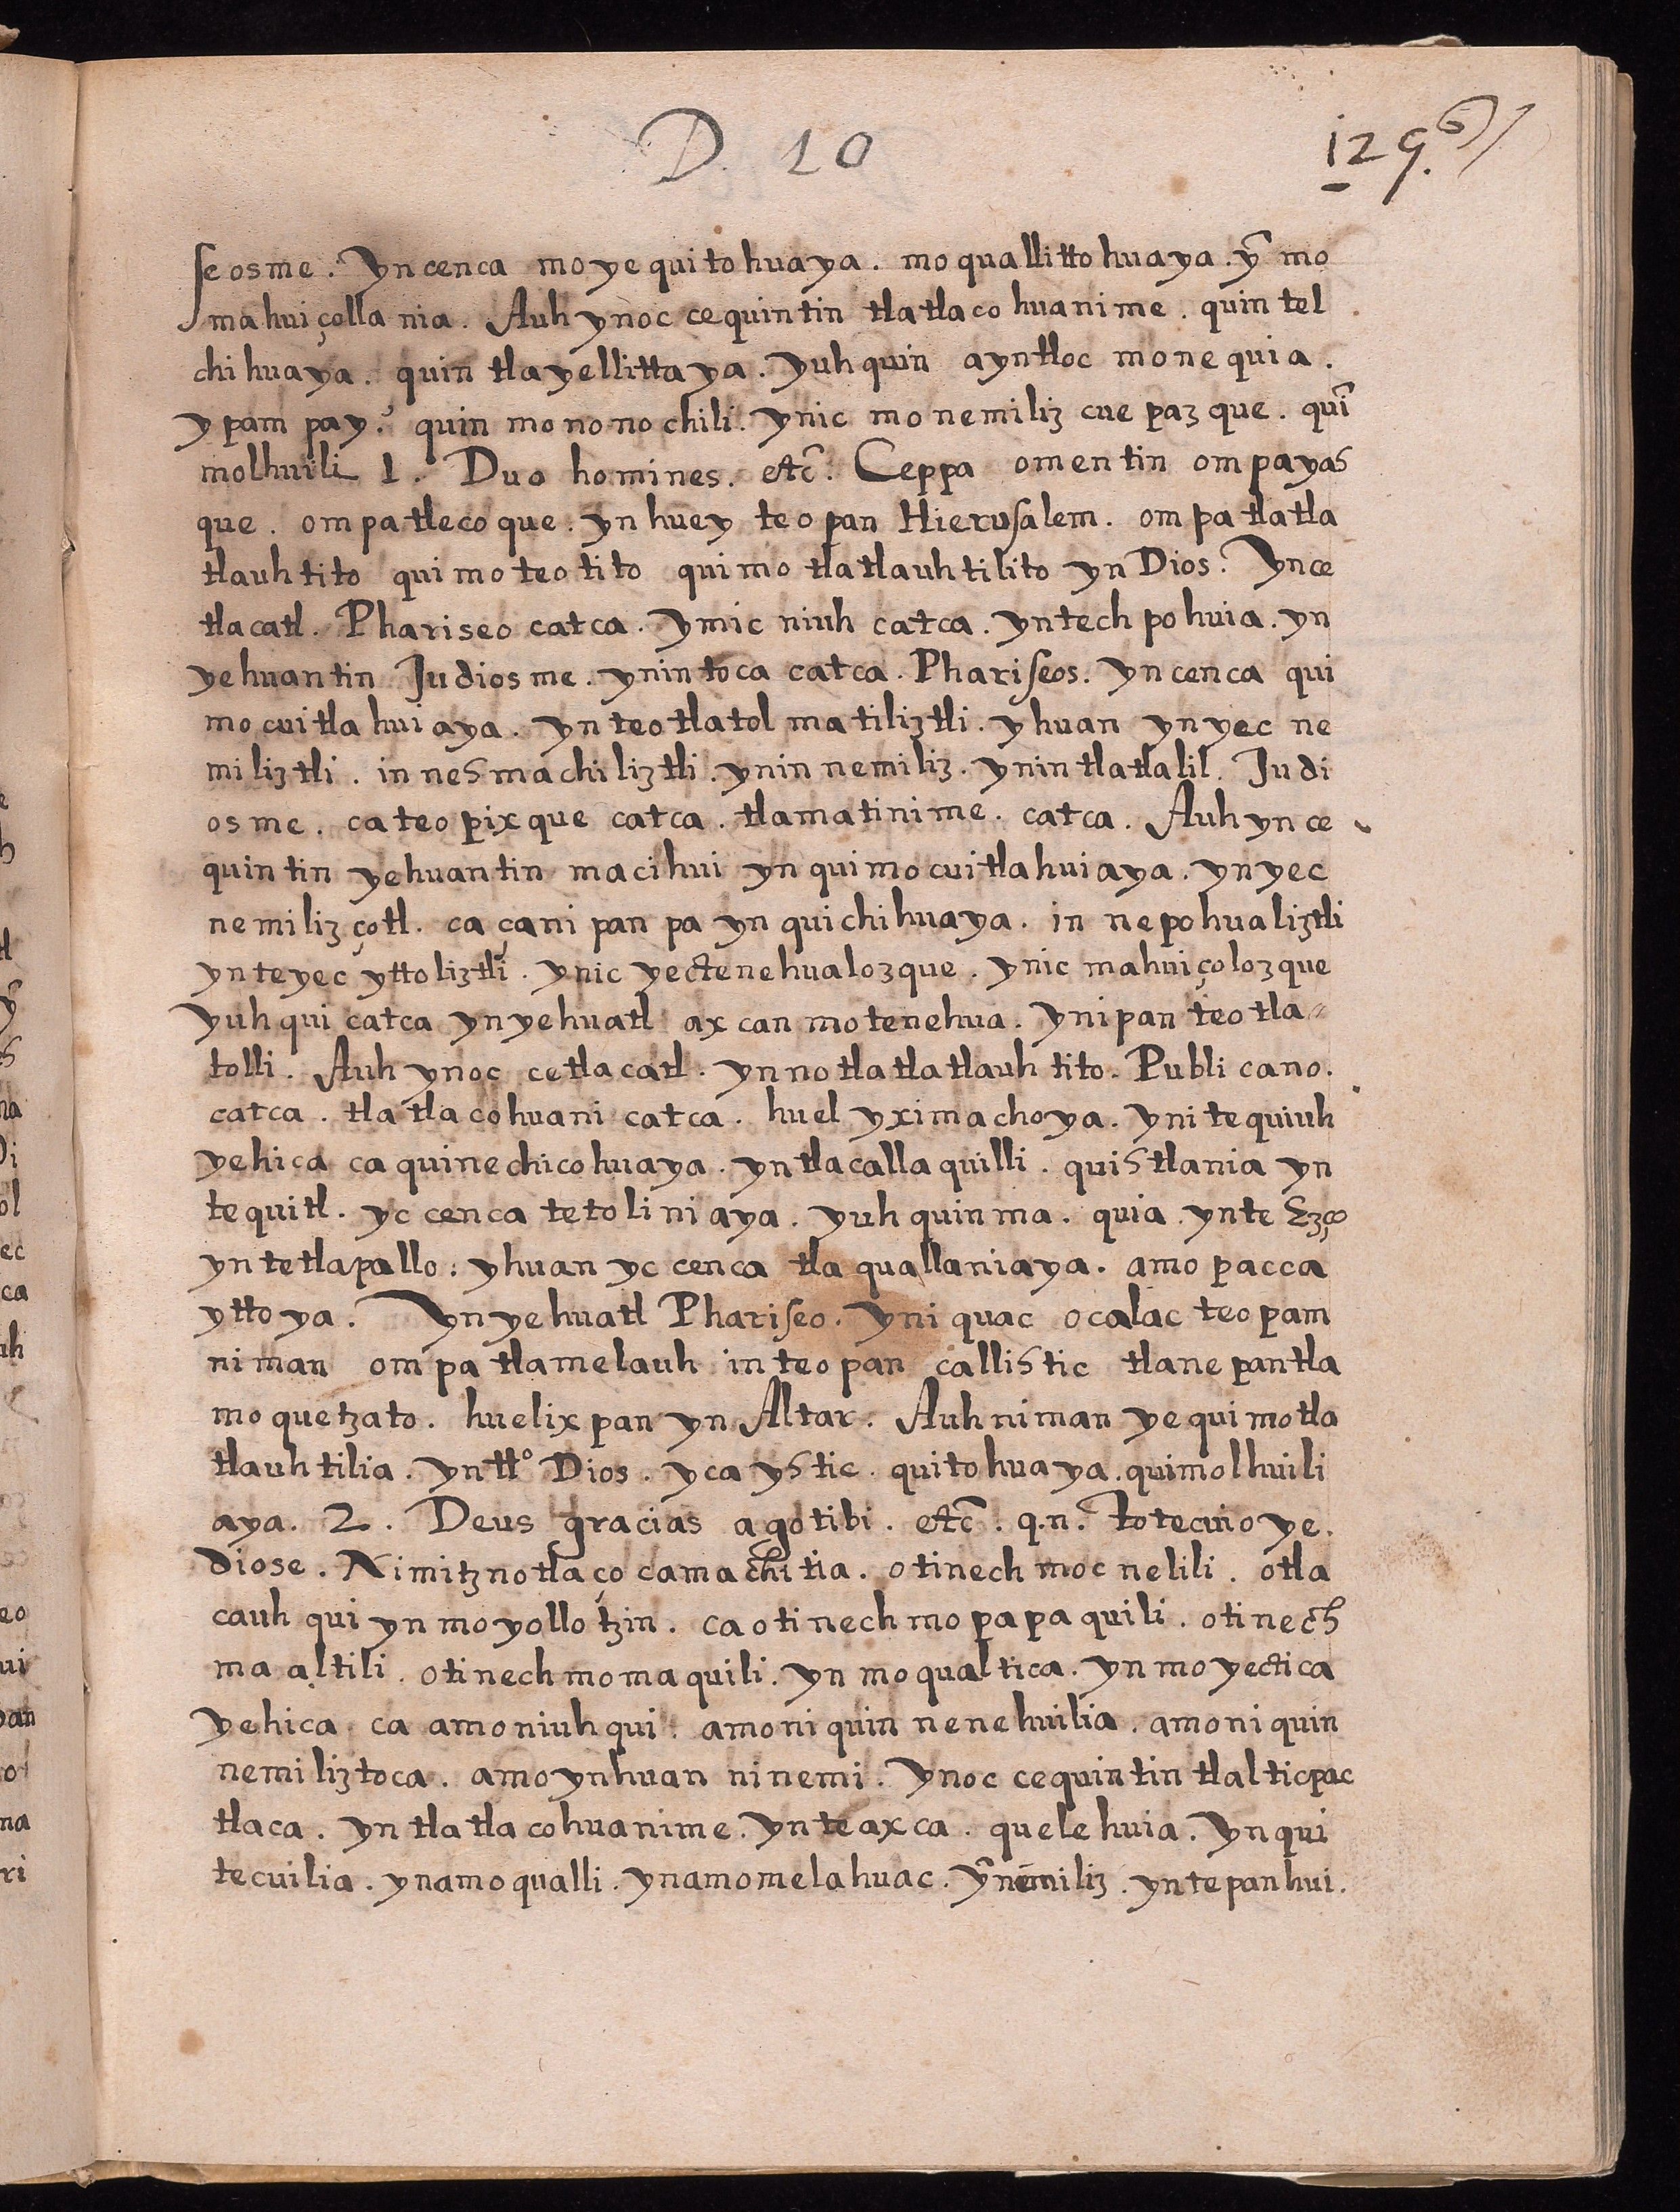 D. 10
129.
seosme. Yncenca moyequitohuaya. moquallittohuaya. ỹ mo
mahuiçollania. Auh ynoc cequintin tlatlacohuanime. quintel
chihuaya. quintlayellittaya. Yuhquin ayntloc monequia.
ypampay. quinmononochili. ynic monemiliz cuepazque. quĩ
molhuili 1. Duo homines. etc̃. Ceppa omentin ompayas
que. ompatlecoque. ynhuey teopan Hierusalem. ompatlatla
tlauhtito quimoteotito quimotlatlauhtilito yn Dios. Ynce
tlacatl. Phariseo catca. Ymicniuh catca. yntechpohuia. yn
yehuantin Judiosme. ynintoca catca. Phariseos. yncenca qui
mocuitlahuiaya. ynteotlatolmatiliztli. yhuan ynyecne
miliztli. in nesmachiliztli. ynin nemiliz. ynintlatlalil. Judi
osme. cateopixque catca. tlamatinime. catca. Auhynce
quintin yehuantin macihui ynquimocuitlahuiaya. ynyec
nemilizçotl. caçanipanpa ynquichihuaya. in nepohualiztli
ynteyecyttoliztli. ynic yectenehualozque. ynic mahuiçolozque
yuhqui catca ynyehuatl axcan motenehua. ynipan teotla
tolli. Auh ynoc cetlacatl. ynnotlatlatlauhtito. Publicano.
catca. tlatlacohuani catca. huel yximachoya. ynitequiuh
yehica caquinechicohuaya. yntlacallaquilli. quistlania yn
tequitl. yccenca tetoliniaya. yuhquinma. quia. ynte Ezço
yntetlapallo: yhuan yccenca tlaquallaniaya. amo pacca
yttoya. Ynyehuatl Phariseo. yniquac ocalac teopam
niman ompa tlamelauh inteopan callistic tlanepantla
moquetzato. huelixpan yn Altar. Auhniman yequimotla
tlauhtilia. yntt° Dios. ycaystic. quitohuaya. quimolhuili
aya. 2. Deus gracias agotibi. etc̃. q.n. totecuioye.
diose. Nimitznotlaçocamachitia. otinechmocnelili. otla
cauhqui ynmoyollotzin. caotinechmopapaquili. otinech
maaltili. otinechmomaquili. ynmoqualtica. ynmoyectica
yehica ca amoniuhqui. amoniquinnenehuilia. amoniquin
nemiliztoca. amoynhuan ninemi. ynoc cequintin tlalticpac
tlaca. yntlatlacohuanime. ynteaxca. quelehuia. ynqui
tecuilia. ynamoqualli. ynamomelahuac. ỹnemiliz. yntepanhui.